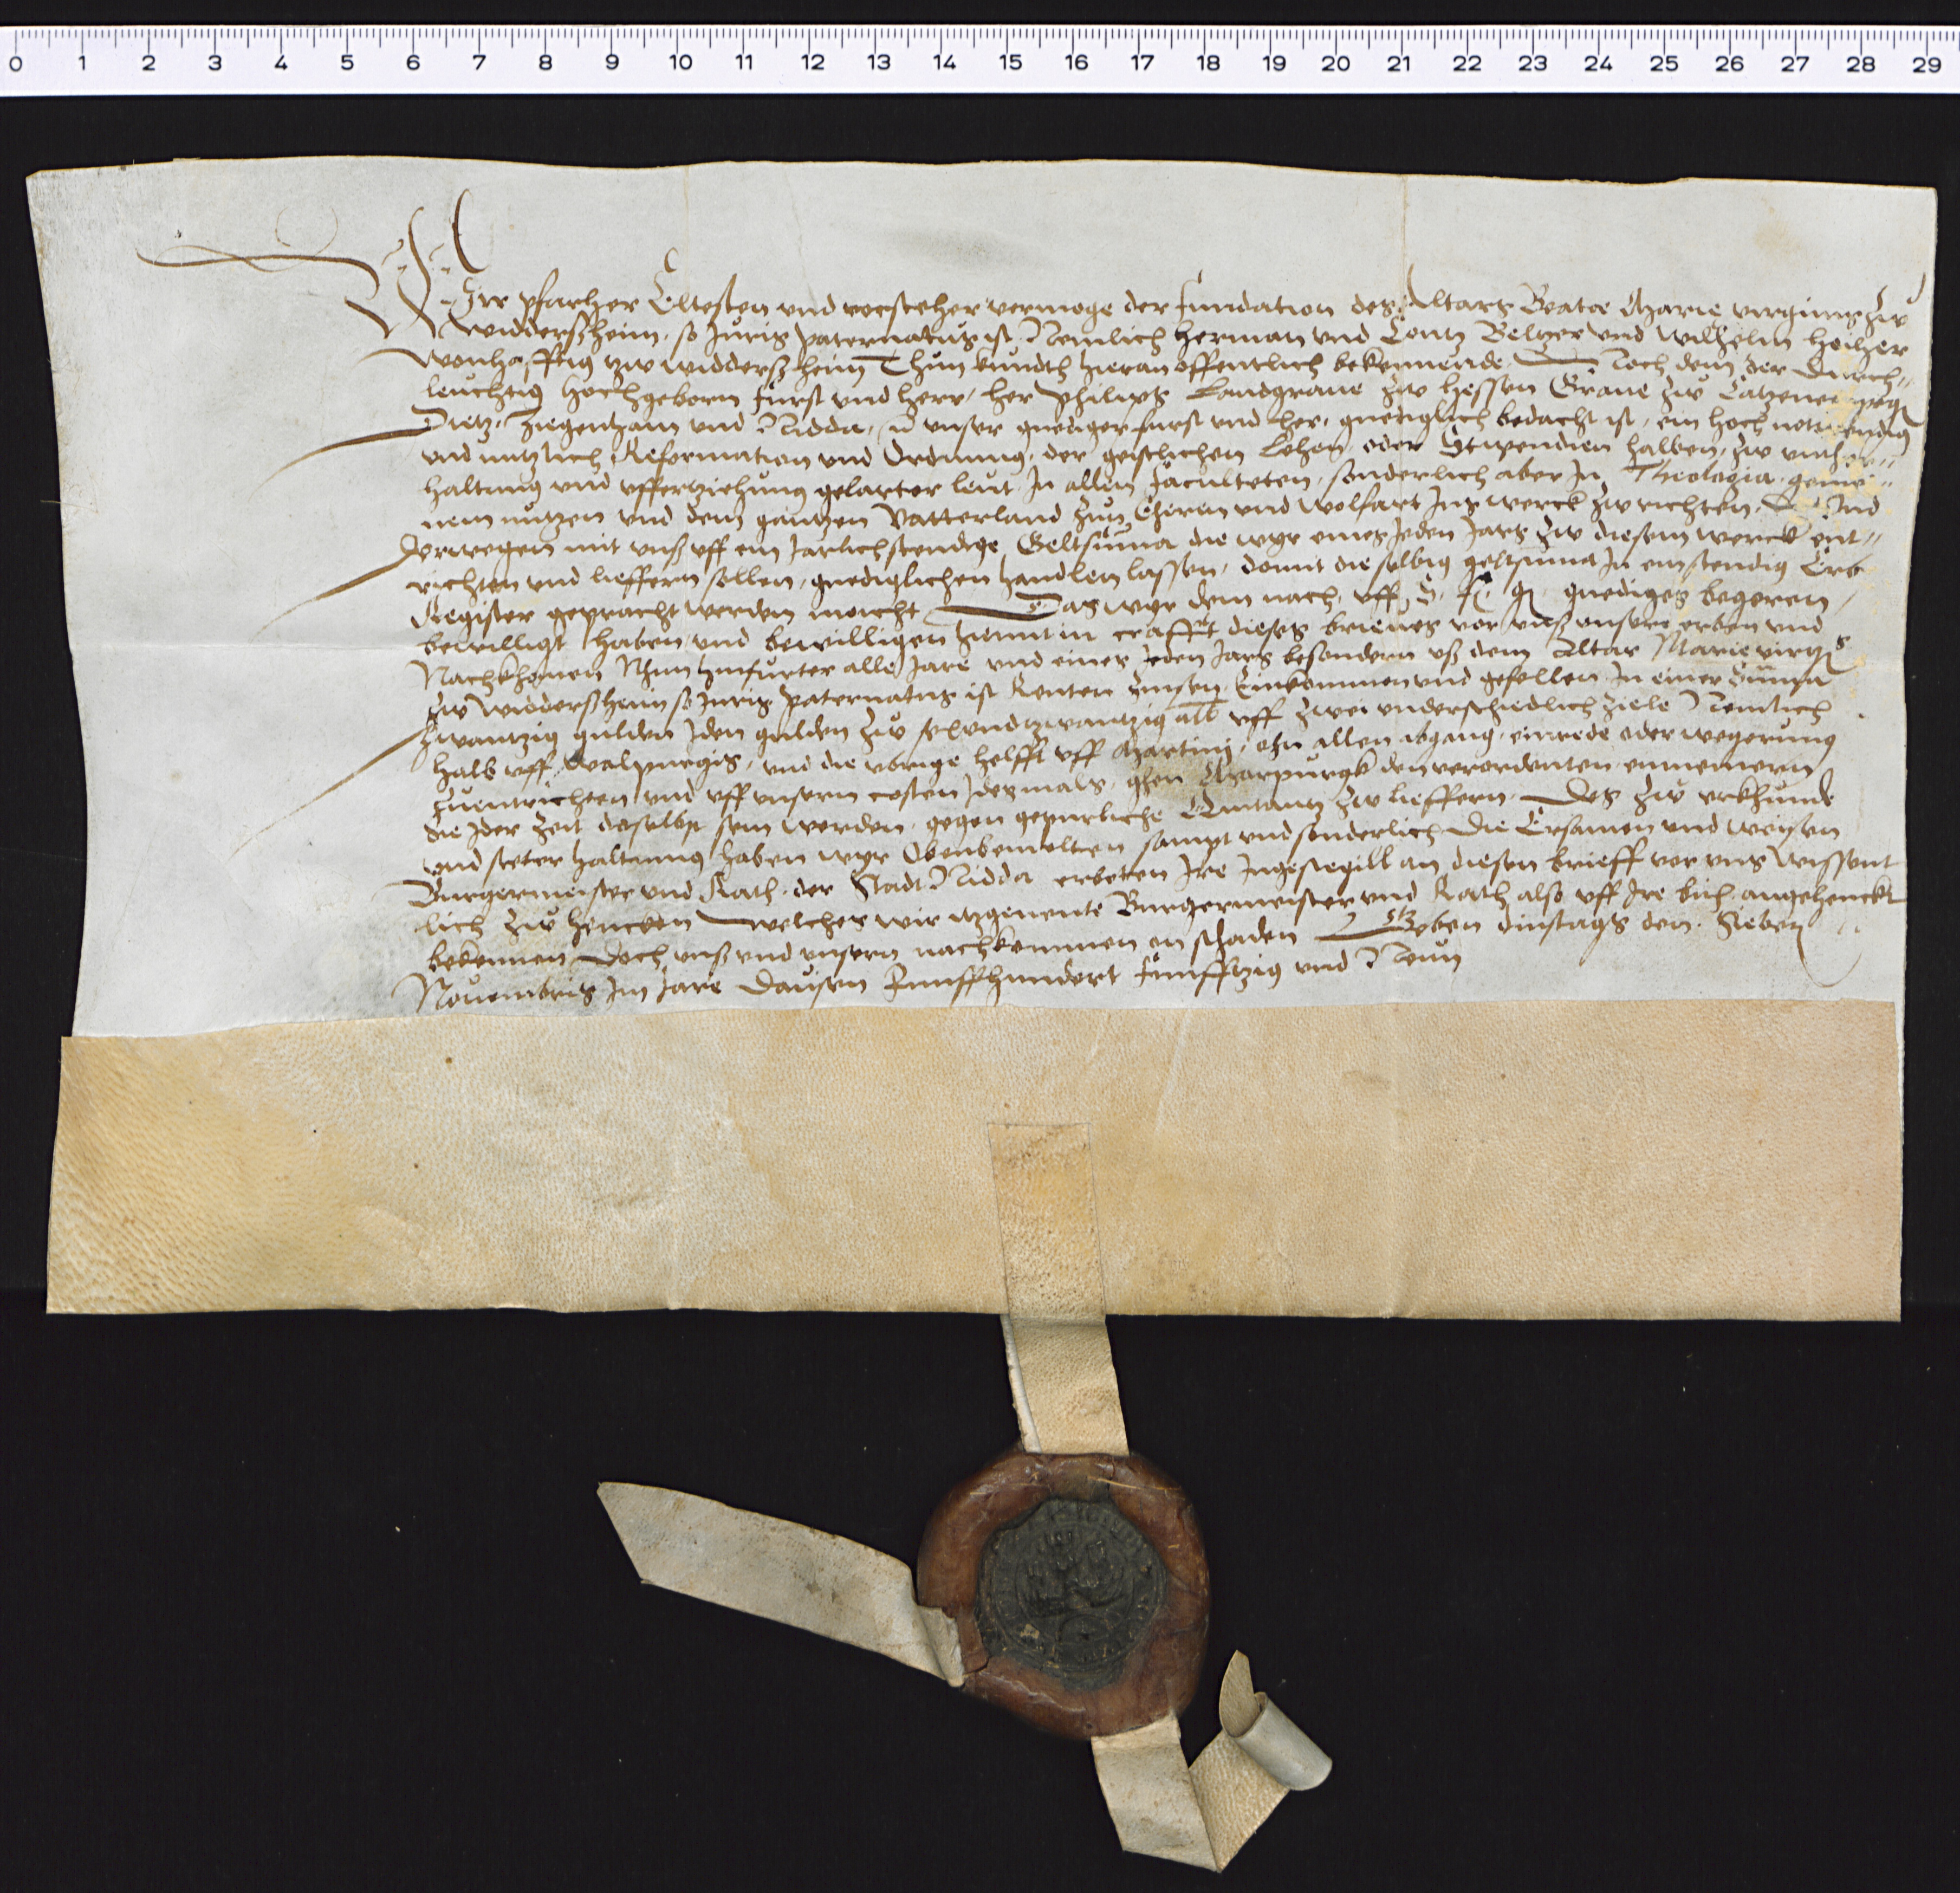 0 1 2 3 4 5 6 7 8 9 10 11 12 13 14 15 16 17 18 19 20 21 22 23 24 25 26 27 28 29
Wir pfarher Eltesten und vorsteher vermoge der fundation des Altars Beatæ Marie virginis zw
widderßheim, so Juris paternatus ist Nemlich Herman und Contz Beltzer und wilhelm
wonhafftig zw widderßheim Thun kundth hieran offentlich bekennende Noch dem der Durch„
leuchtig Hochgeborn Fürst und herr, her Philips Landgrave zw Hessen Grave zw Catzenelnpog
Dietz, Ziegenhain und Nidda, unser gnediger furst und her, gnenglich bedacht ist, ein hoch nottwendig
und nutzlich Reformation und Ordnung, der geistlichen Lehen oder Stipendien halben, zw under„
haltung und uffertziehung gelarter leut In allen Faculteten, sonderlich aber In Theologia gemei„
nem nutzen und dem gantzen Vatterland zun Ehren und Wolfart Ins werck zw richten, Und
derwegen mit unß uff ein Jarlich stendige Geltsuma die wyr eines Jeden Jars zw diesem werck ent„
richten und lieffern sollen, gnediglichen handlen lassen, domit die selbig geltsuma In ein stendig Erb
Register gepracht werden moicht Das wyr dem nach uff S. F. G. gnediges begeren
bewilligt haben und bewilligen hirmit in crafft dieses brieves vor unß unsere erben und
Nachkhomen Nhun hinfurter alle Jare und eines Jeden Jars besondern uß dem Altar Marie virgis
zw widderßheim so Juris paternatus ist Renten Zinsen Einkommen und gefellen In einer Suma
zwantzig gulden Jden gulden zw sexundtzwantzig alb uff zwei underschiedlich ziele Nemlich
halb uff Walpurgis, und die vbrige helfft uff Martini, ohn allen abgang, einrede oder wegerung
zuentrichten und uff unsern costen Jdesmals, ghen Marpurgk den verordenten einnemern
die Jder zeit daselbst sein werden, gegen gepurliche Quitantz zw lieffern. Des zw urkhunde
und steter haltung haben wyr Obenbemelten sampt und sonderlich die Ersamen und weysen
Burgermeister und Rath der Stadt Nidda erbeten Ire Ingesiegill an diesen brieff vor uns wissent
lich zw hencken welches wir itzgenente Burgermeister und Rath also uff Ire bith angehenckt
bekennen Doch unß und unsern nachkommen on schaden Geben dinstags den Sieben
Novembris Im Jare Dausen Funffhundert Funfftzig und Neun